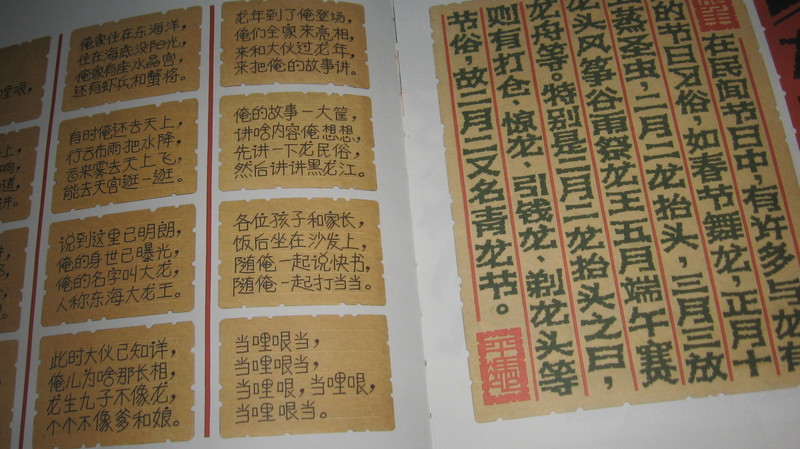 龙年到了俺登场，
俺们全家来亮相，
来和大伙过龙年，
来把俺的故事讲。
俺的故事一大筐，
讲啥内容俺想想，
先讲一下龙民俗，
然后讲讲黑龙江。
各位孩子和家长，
饭后坐在沙发上，
随俺一起说快书，
随俺一起打当当。
当哩哏当，
当哩哏当，
当哩哏，当哩哏，
当哩哏当。
俺家住在东海洋，
住在海底没阳光，
俺家有座水晶宫，
还有虾兵和蟹将。
有时俺还去天上，
行云布雨把水降，
云来雾去天上飞，
能去天宫逛一逛。
说到这里已明朗，
俺的身世已曝光，
俺的名字叫大龙，
人称东海大龙王。
此时大伙已知详，
俺儿为啥那长相，
龙生九子不像龙，
个个不像爹和娘。
哩哏，
上，
响，
道，
讲。
在民间节日中，有许多与龙有
的节日习俗，如春节舞龙，正月十
蒸圣虫，二月二龙抬头，三月三放
龙头风筝谷雨祭龙王五月端午赛
龙舟等。特别是二月二龙抬头之日，
则有打仓、惊龙、引钱龙、剃龙头等
节俗，故二月二又名青龙节。